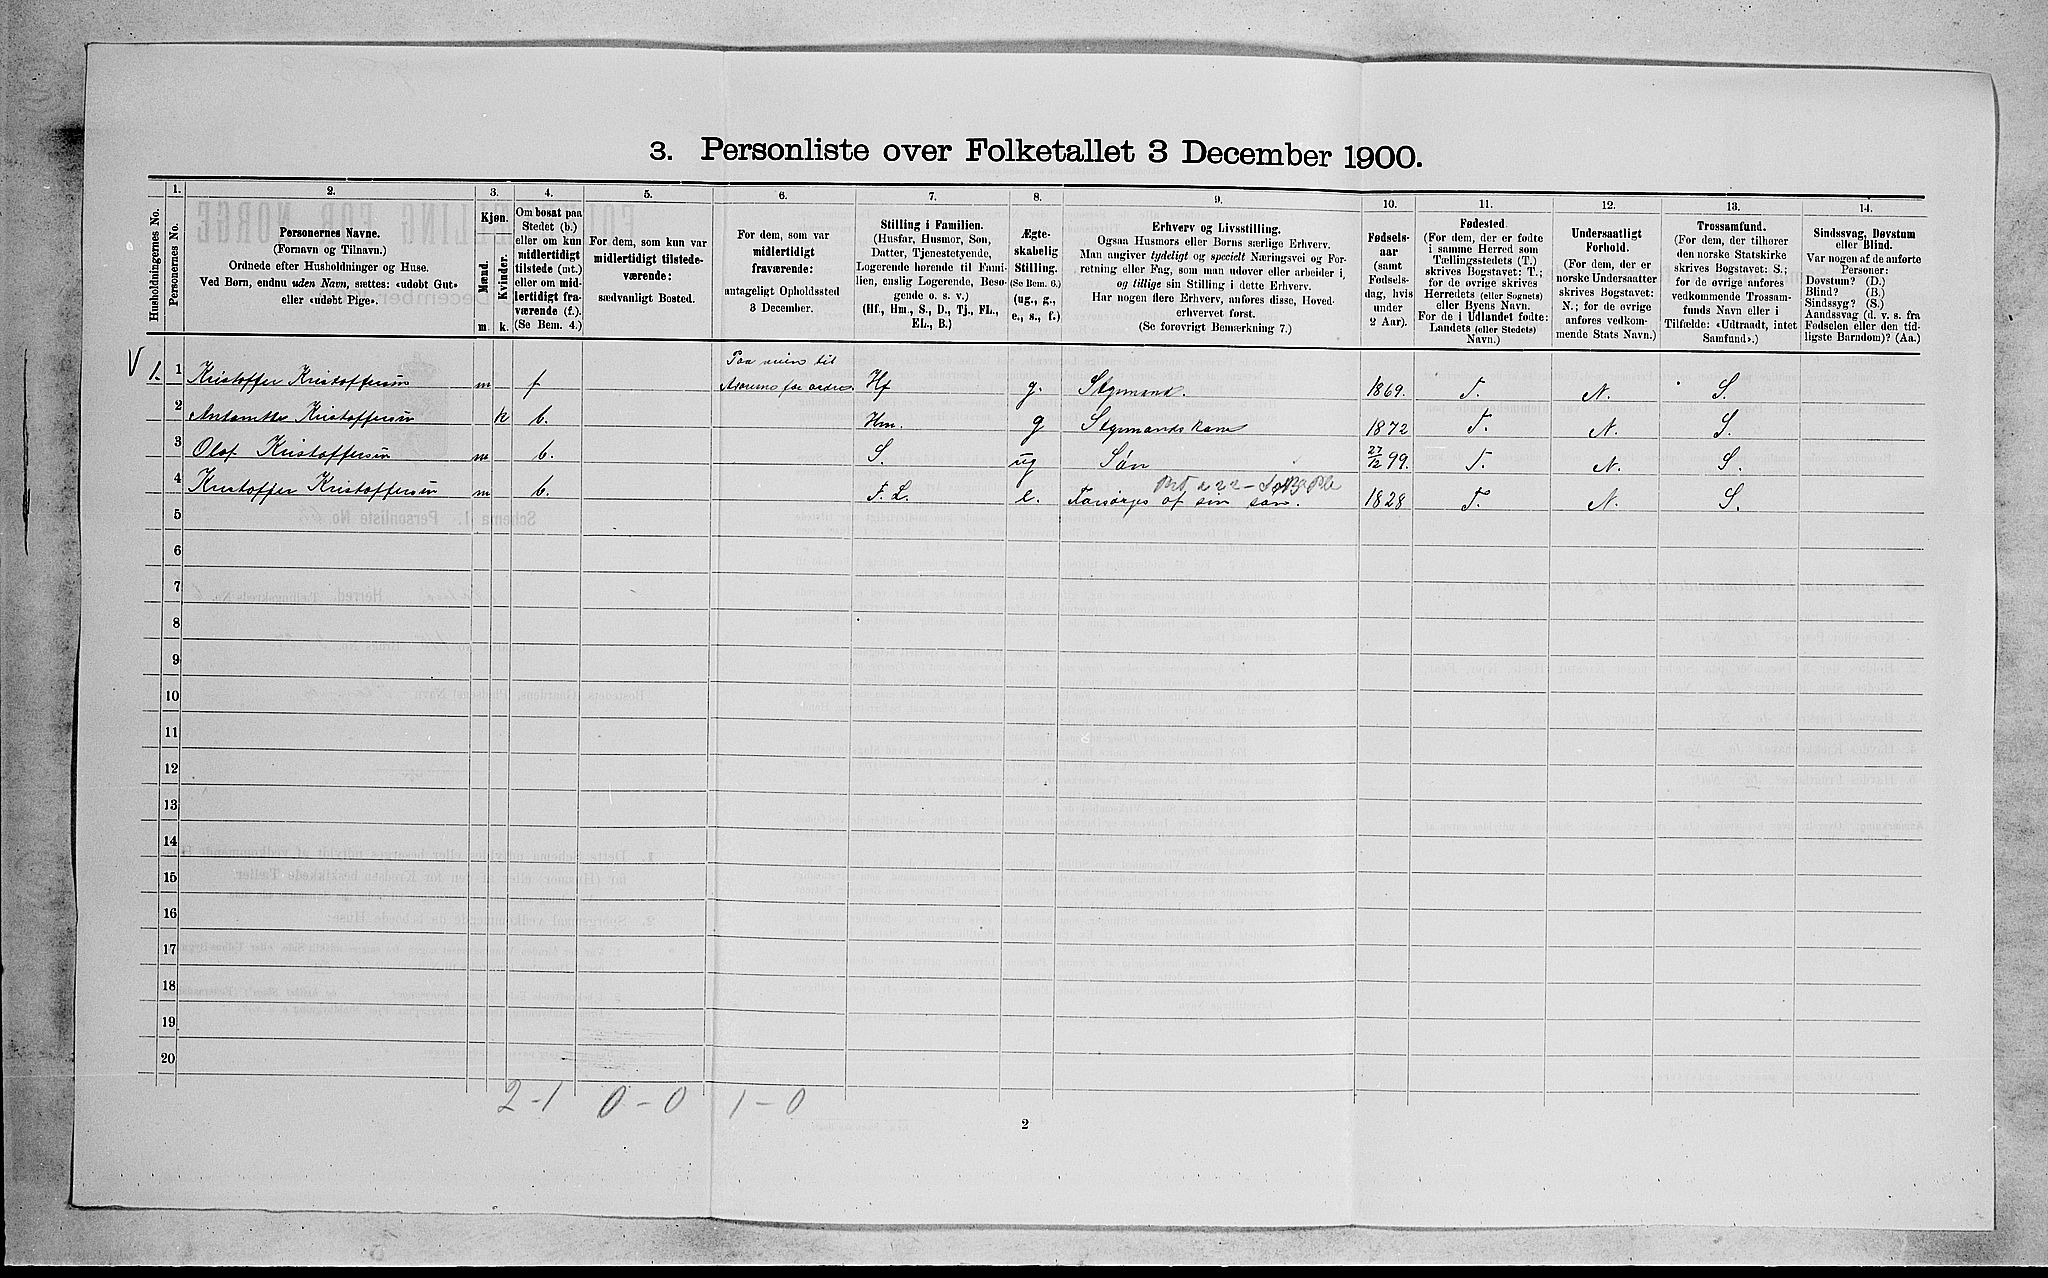 3. Personliste over Folketallet 3 December 1900.
1. 2. 3. 4. 5. 6. 7. 8. 9. 10. 11. 12. 13. 14.
Husholdningernes No.
Personernes No.
Personernes Navne.
(Fornavn og Tilnavn.)
Ordnede efter Husholdninger og Huse.
Ved Børn, endnu uden Navn, sættes: «udøbt Gut»
eller «udøbt Pige».
Kjøn.
Mænd.
Kvinder.
m. k.
Om bosat paa
Stedet (b.)
eller om kun
midlertidigt
tilstede (mt.)
eller om mid-
lertidigt fra-
værende (f.).
(Se Bem. 4.)
For dem, som kun var
midlertidigt tilstede-
værende:
sædvanligt Bosted.
For dem, som var
midlertidigt
fraværende:
antageligt Opholdssted
3 December.
Stilling i Familien.
(Husfar, Husmor, Søn,
Datter, Tjenestetyende,
Logerende hørende til Fami-
lien, enslig Logerende, Besø-
gende o. s. v.)
(Hf., Hm., S., D., Tj., FL.,
EL., B.)
Ægte-
skabelig
Stilling.
(Se Bem. 6.)
(ug., g.,
e., s., f.)
Erhverv og Livsstilling.
Ogsaa Husmors eller Børns særlige Erhverv.
Man angiver tydeligt og specielt Næringsvei og For-
retning eller Fag, som man udøver eller arbeider i,
og tillige sin Stilling i dette Erhverv.
Har nogen flere Erhverv, anføres disse, Hoved-
erhvervet først.
(Se forøvrigt Bemærkning 7.)
Fødsels-
aar
(samt
Fødsels-
dag, hvis
under
2 Aar).
Fødested.
(For dem, der er fødte
i samme Herred som
Tællingsstedets (T.)
skrives Bogstavet: T.;
for de øvrige skrives
Herredets (eller Sognets)
eller Byens Navn.
For de i Udlandet fødte:
Landets (eller Stedets)
Navn.)
Undersaatligt
Forhold.
(For dem, der er
norske Undersaatter
skrives Bogstavet:
N.; for de øvrige
anføres vedkom-
mende Stats Navn.)
Trossamfund.
(For dem, der tilhører
den norske Statskirke
skrives Bogstavet: S.;
for de øvrige anføres
vedkommende Trossam-
funds Navn eller i
Tilfælde: «Udtraadt, intet
Samfund».)
Sindssvag, Døvstum
eller Blind.
Var nogen af de anførte
Personer:
Døvstum? (D.)
Blind? (B.)
Sindssyg? (S.)
Aandssvag (d. v. s. fra
Fødselen eller den tid-
ligste Barndom)? (Aa.)
V 1. 1 Kristoffer Kristoffersen m f Paa veien til
for ordre Hf g. Styrmand. 1869. T. N. S.
2 Kristoffersen k b. Hm. g Styrmands kone 1872 T. N. S.
3 Olof Kristoffersen m b. S. ug Søn 27/12 99. T. N. S.
4 Kristoffer Kristoffersen m b. F. L. e. Forsørges af sin søn. 1828 T. N. S.
5
6
7
8
9
10
11
12
13
14
15
16
17
18
19
20
2-1 0-0 1-0
2